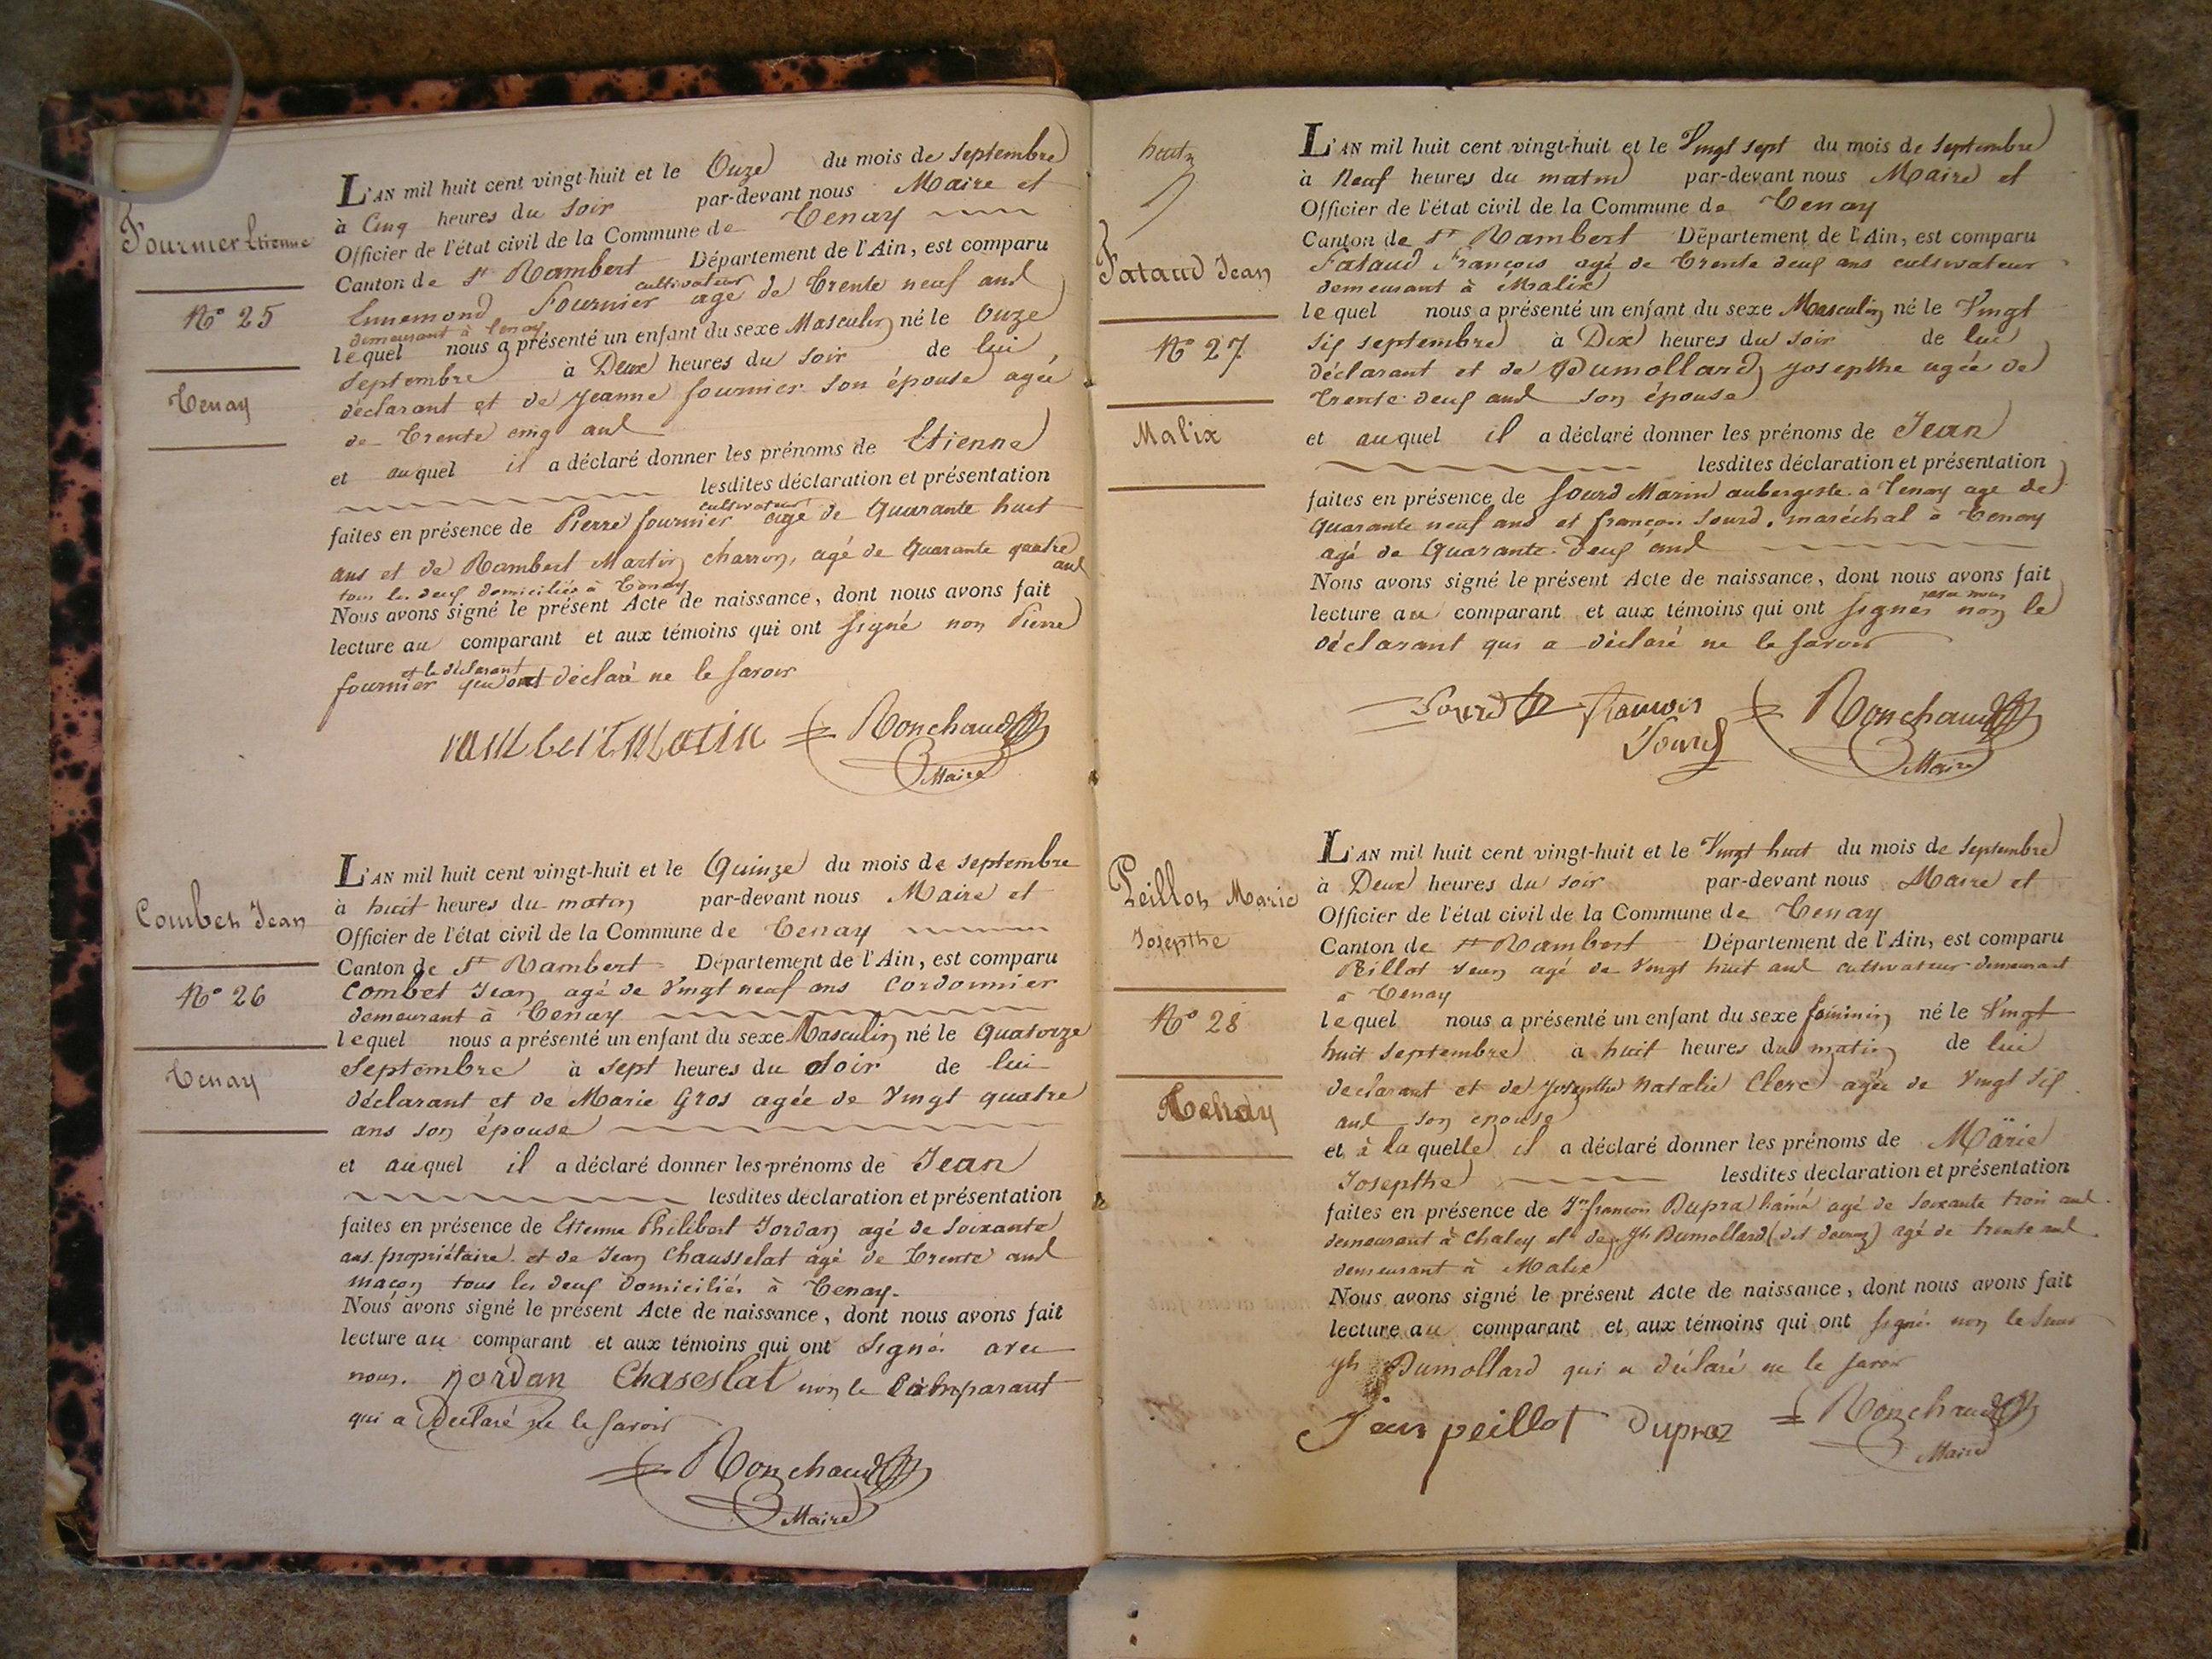 Fournier Etienne
N° 25
Tenay
L'AN mil huit cent vingt-huit et le Onze du mois de Septembre
à Cinq heures du Soir par-devant nous Maire et
Officier de l'état civil de la Commune de Tenay
Canton de St Rambert Département de l'Ain, est comparu
cultivateur
Ennemond Fournier agé de trente neuf ans
demeurant à tenay
lequel nous a présenté un enfant du sexe Masculin né le Onze
Septembre à Deux heures du Soir de lui
déclarant et de Jeanne fournier son épouse agée
de trente cinq ans
et auquel il a déclaré donner les prénoms de Etienne
lesdites déclaration et présentation
cultivateur
faites en présence de Pierre fournier agé de Quarante huit
ans et de Rambert Martin charron, agé de Quarante quatre
ans
tous les deux domiciliés à Tenay
Nous avons signé le présent Acte de naissance, dont nous avons fait
lecture au comparant et aux témoins qui ont signé non Pierre
et le déclarant
fournier qui ont déclaré ne le savoir
rambert matin Ronchaud
Maire
Combet Jean
N° 26
Tenay
L'AN mil huit cent vingt-huit et le Quinze du mois de septembre
à huit heures du matin par-devant nous Maire et
Officier de l'état civil de la Commune de Tenay
Canton de St Rambert Département de l'Ain, est comparu
Combet Jean agé de Vingt neuf ans Cordonnier
demeurant à Tenay
lequel nous a présenté un enfant du sexe Masculin né le Quatorze
Septembre à sept heures du soir de lui
déclarant et de Marie Gros agée de Vingt quatre
ans son épouse
et auquel il a déclaré donner les prénoms de Jean
lesdites déclaration et présentation
faites en présence de Etienne Philibert Jordan agé de soixante
ans propriétaire et de Jean Chausselat agé de trente ans
maçon tous les deux domiciliés à Tenay.
Nous avons signé le présent Acte de naissance, dont nous avons fait
lecture au comparant et aux témoins qui ont signé avec
nous. jordan Chaseslat non le Comparant
qui a Declaré ne le savoir
Ronchaud
Maire
Fataud Jean
N° 27
Malix
L'AN mil huit cent vingt-huit et le Vingt sept du mois de Septembre
à Neuf heures du matin par-devant nous Maire et
Officier de l'état civil de la Commune de Tenay
Canton de St Rambert Département de l'Ain, est comparu
Fataud François agé de trente deux ans cultivateur
demeurant à Malix
lequel nous a présenté un enfant du sexe Masculin né le Vingt
six septembre à Dix heures du soir de lui
déclarant et de Dumollard Josepthe agée de
trente deux ans son épouse
et auquel il a déclaré donner les prénoms de Jean
lesdites déclaration et présentation
faites en présence de Sourd Marin aubergiste à Tenay age de
Quarante neuf ans et françois Sourd, maréchal à Tenay
agé de Quarante deux ans
Nous avons signé le présent Acte de naissance, dont nous avons fait
avec nous
lecture au comparant et aux témoins qui ont signés non le
déclarant qui a déclaré ne le savoir
Sourd Ronchaud
Sourd
Maire
Peillot Marie
Josepthe
N° 28
Tenay
L'AN mil huit cent vingt-huit et le Vingt huit du mois de Septembre
à Deux heures du soir par-devant nous Maire et
Officier de l'état civil de la Commune de Tenay
Canton de St Rambert Département de l'Ain, est comparu
Peillot Jean agé de Vingt huit ans cultivateur demeurant
à Tenay
lequel nous a présenté un enfant du sexe féminin né le Vingt
huit septembre à huit heures du matin de lui
declarant et de Josepthe Natalie Clerc agée de Vingt six
ans son epouse
et à laquelle il a déclaré donner les prénoms de Marie
Josepthe lesdites declaration et présentation
faites en présence de Jn françois Dupra l'ainé agé de soixante trois ans
demeurant à Chaley et de Jh Dumollard agé de trente ans
demeurant à Malix
Nous avons signé le présent Acte de naissance, dont nous avons fait
lecture au comparant et aux témoins qui ont signé non le
Jh Dumollard qui a déclaré ne le savoir
Jean peillot Dupraz Ronchaud
Maire